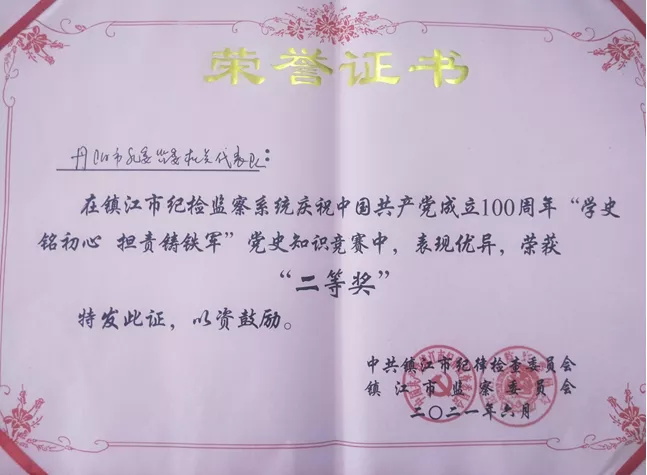 荣誉证书
丹阳市纪委监委机关代表队：
在镇江市纪检监察系统庆祝中国共产党成立100周年“学史
铭初心 担责铸铁军”党史知识竞赛中，表现优异，荣获
“二等奖”
特发此证，以资鼓励。
中共镇江市纪律检查委员会
镇江市监察委员会
二〇二一年六月